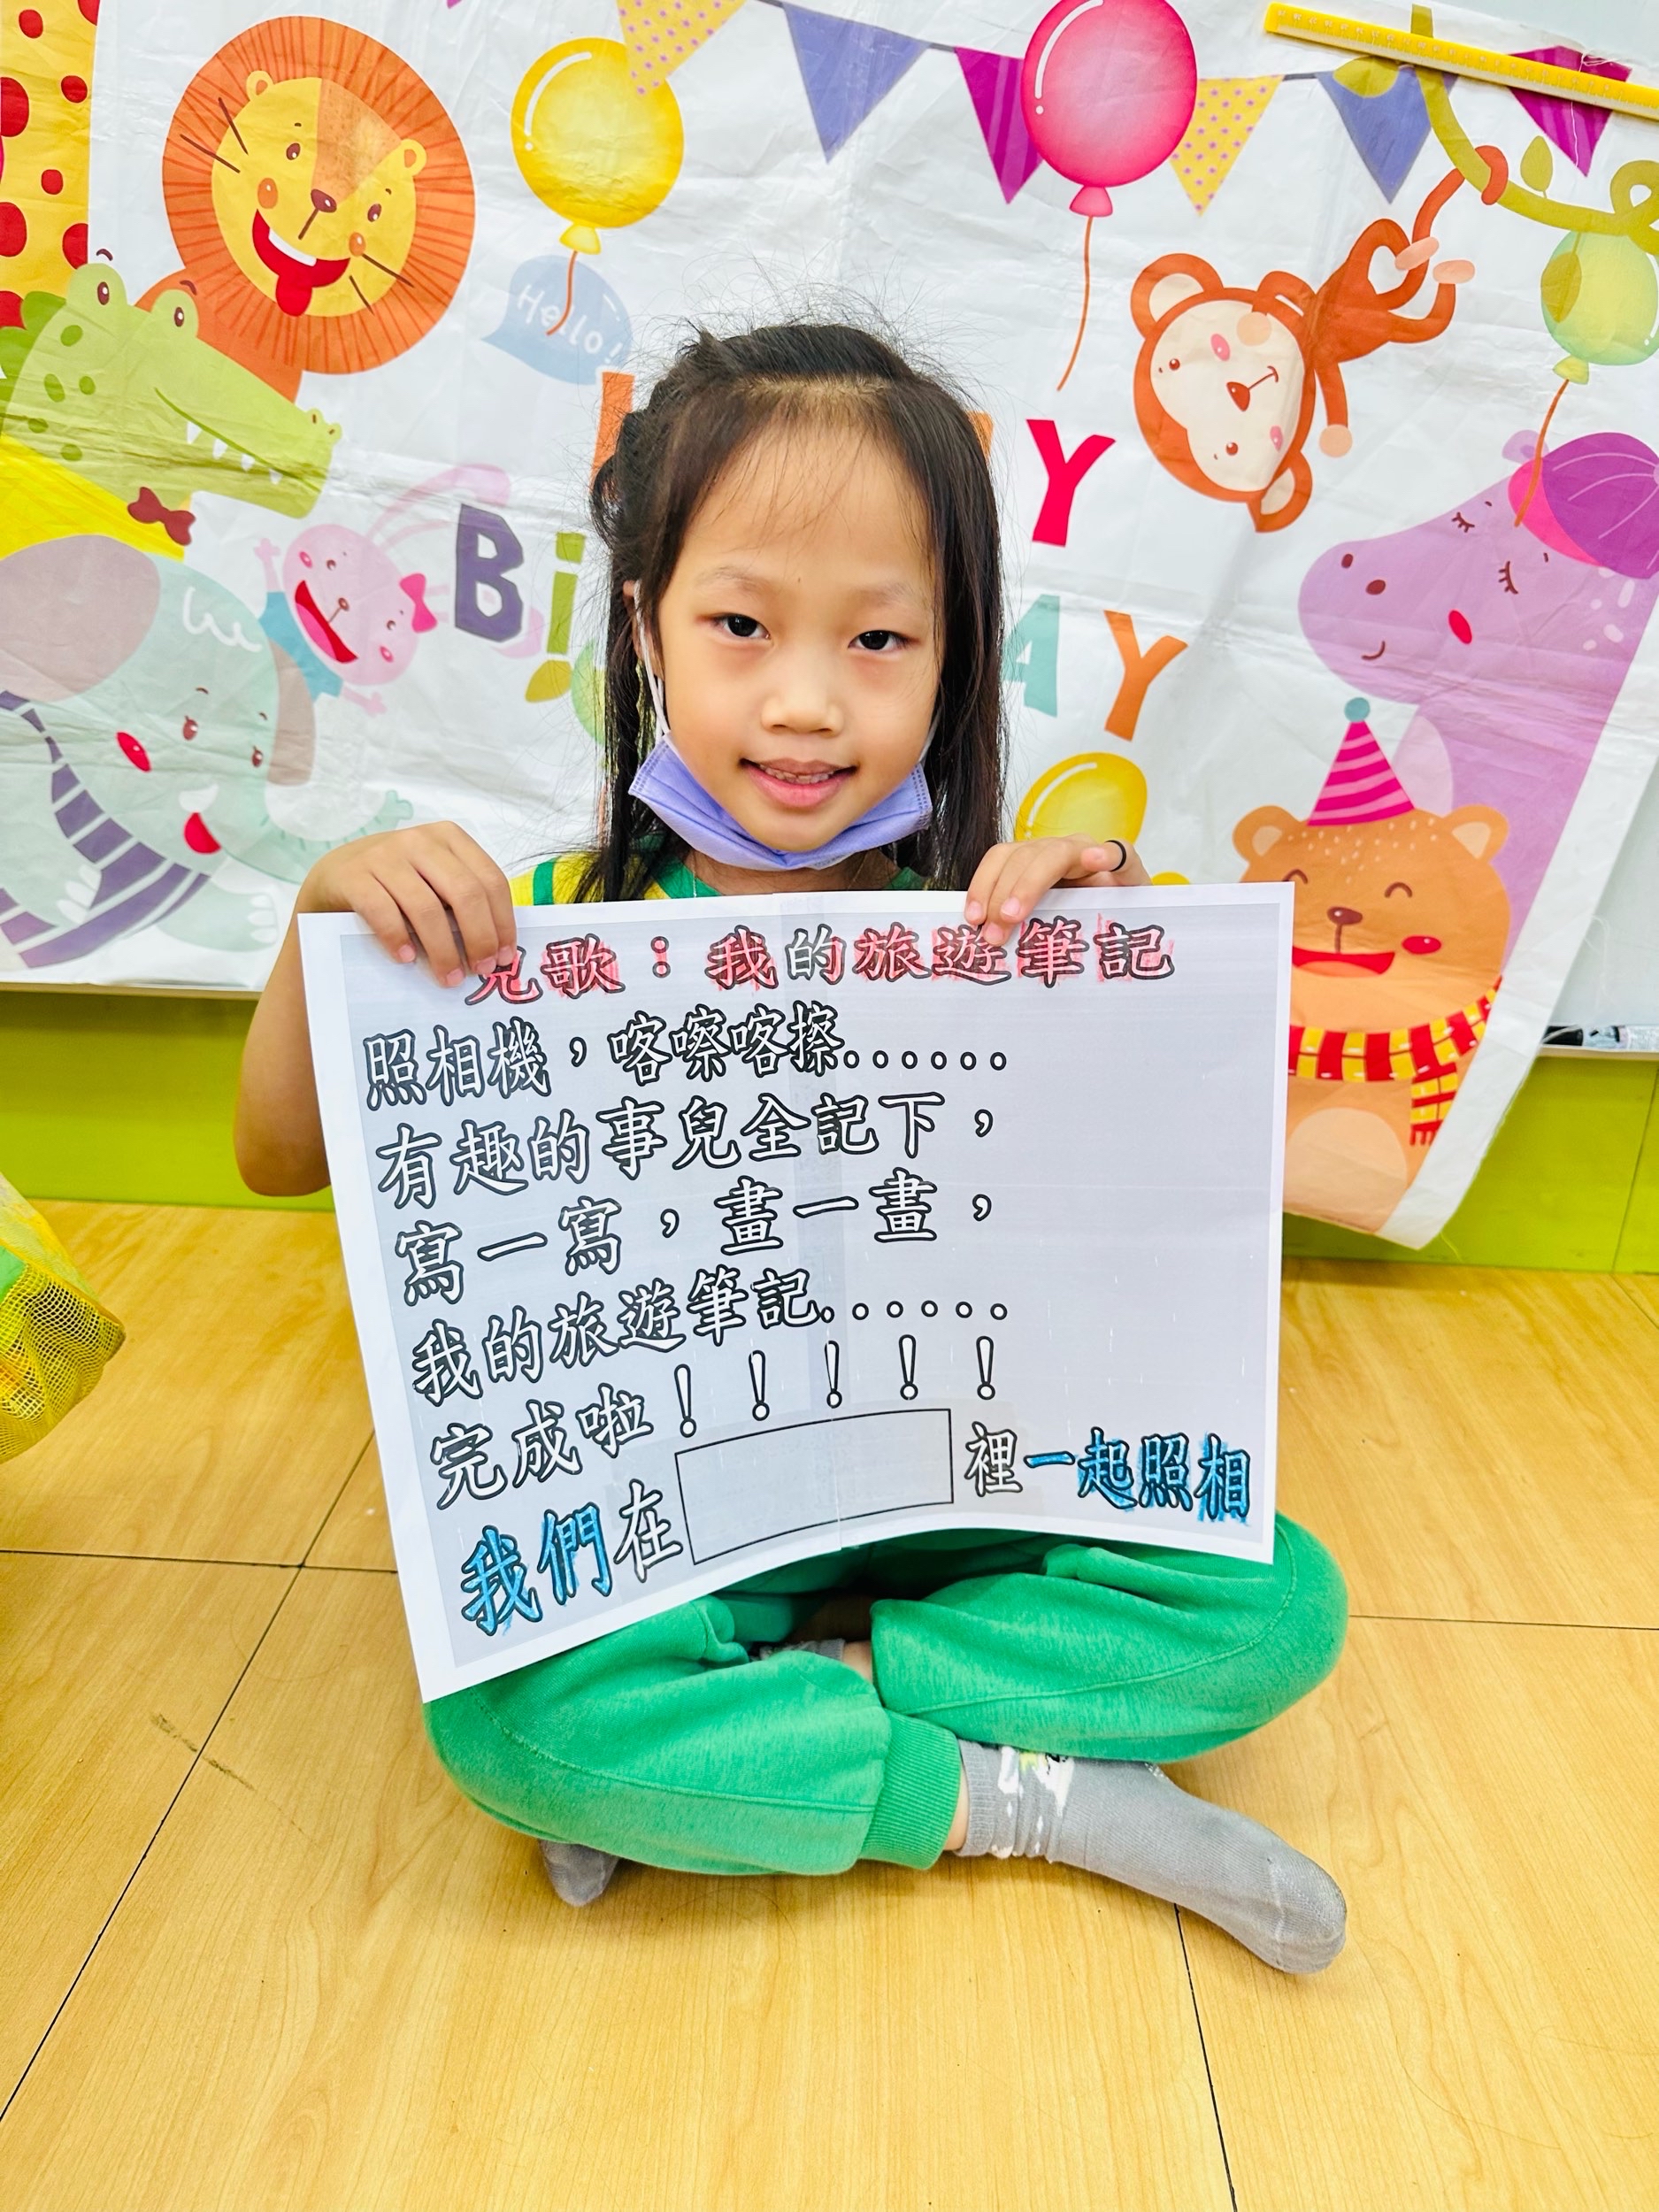 Hello!
Y
Bi
AY
兒歌：我的旅遊筆記
照相機，喀嚓喀擦......
有趣的事兒全記下，
寫一寫，畫一畫，
我的旅遊筆記......
完成啦！！！！！
我們在 裡一起照相